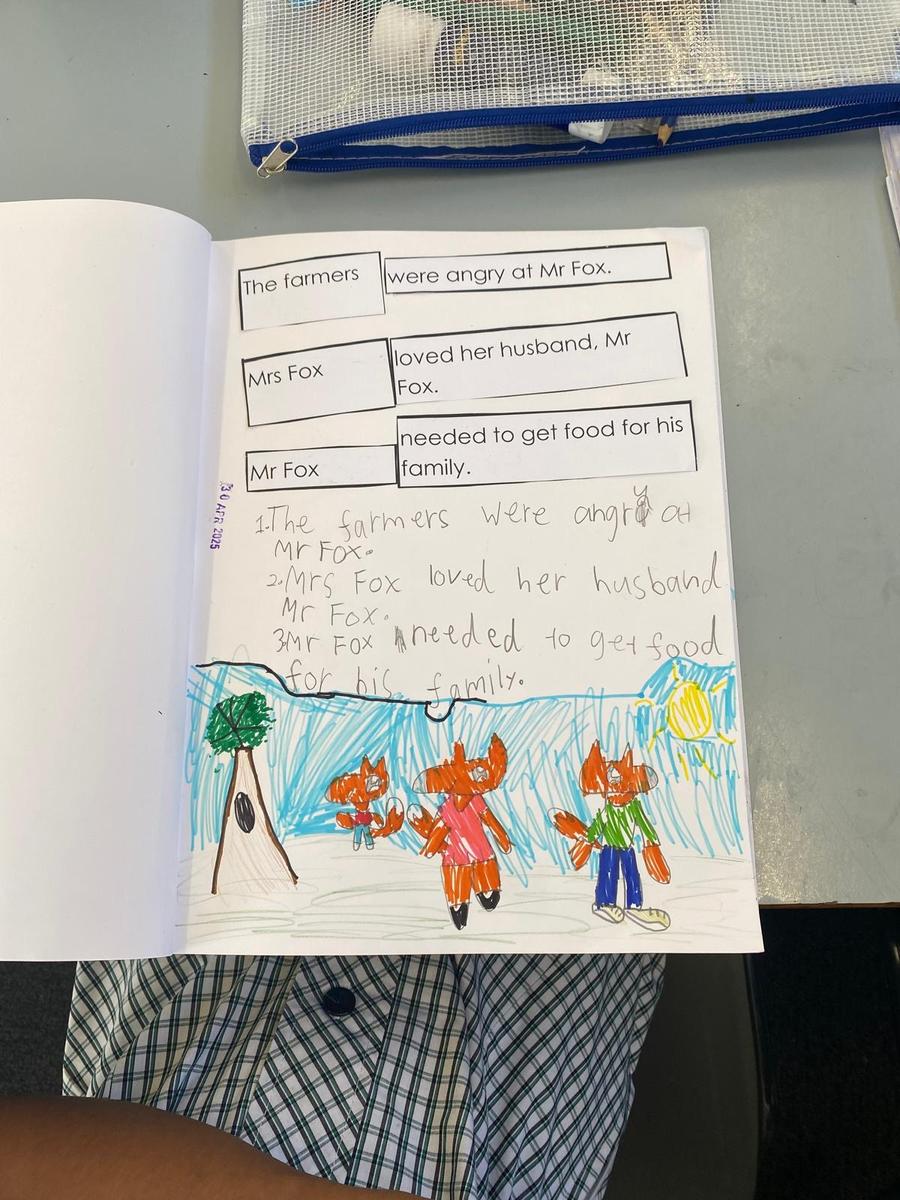 The farmers were angry at Mr Fox.
Mrs Fox loved her husband, Mr
Fox.
Mr Fox needed to get food for his
family.
30 APR 2025
1.The farmers were angry at
Mr Fox.
2.Mrs Fox loved her husband
Mr Fox.
3Mr Fox needed to get food
for his family.